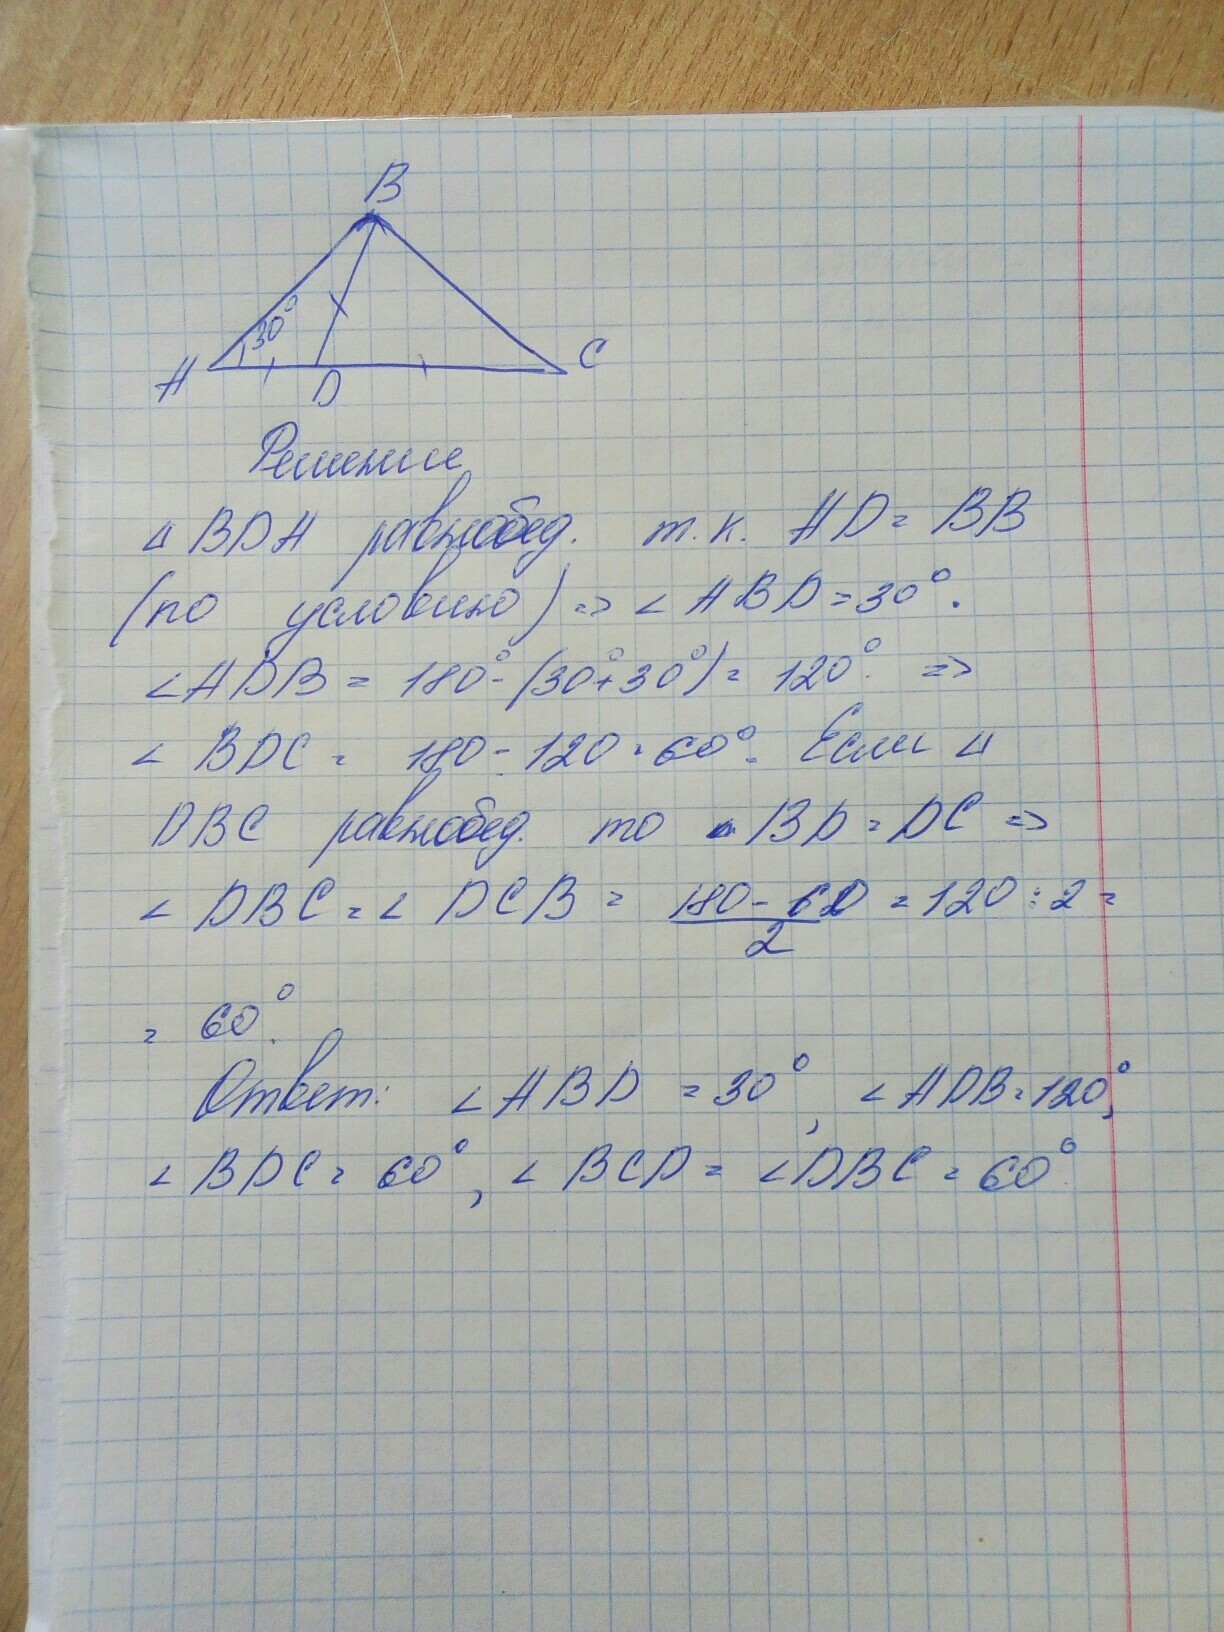 B
30°
A
D
C
Решение
△ BDA равнобед. т.к. AD = BD
(по условию) => ∠ ABD = 30°.
∠ADB = 180° - (30°+30°) = 120° =>
∠ BDC = 180 - 120 = 60°. Если △
DBC равнобед. то BD = DC =>
∠ DBC = ∠ DCB = 180 - 60 / 2 = 120 : 2 =
= 60°.
Ответ: ∠ABD = 30°, ∠ADB = 120°,
∠ BDC = 60°, ∠ BCD = ∠DBC = 60°